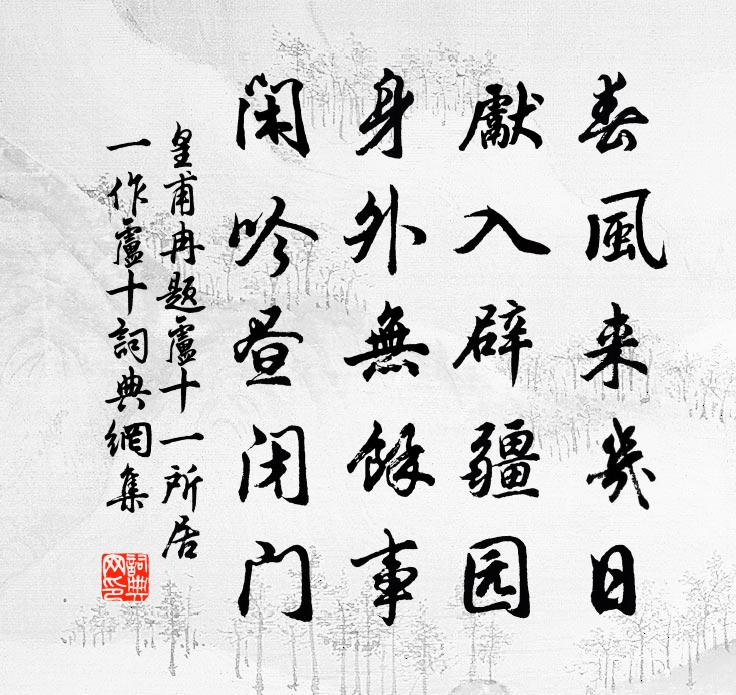 春風来幾日
獻入辟疆园
身外無餘事
闲吟昼闭门
皇甫冉题盧十一所居
一作盧十詞典網集
詞典
网印